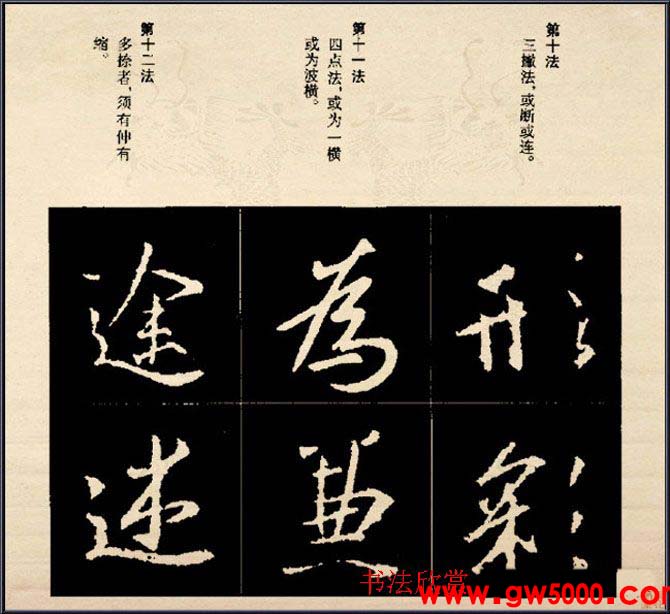 第十法
三撇法，或断或连。
第十一法
四点法，或为一横
或为波横。
第十二法
多捺者，须有伸有
缩。
形
彩
為
典
途
述
书法欣赏
www.gw5000.com